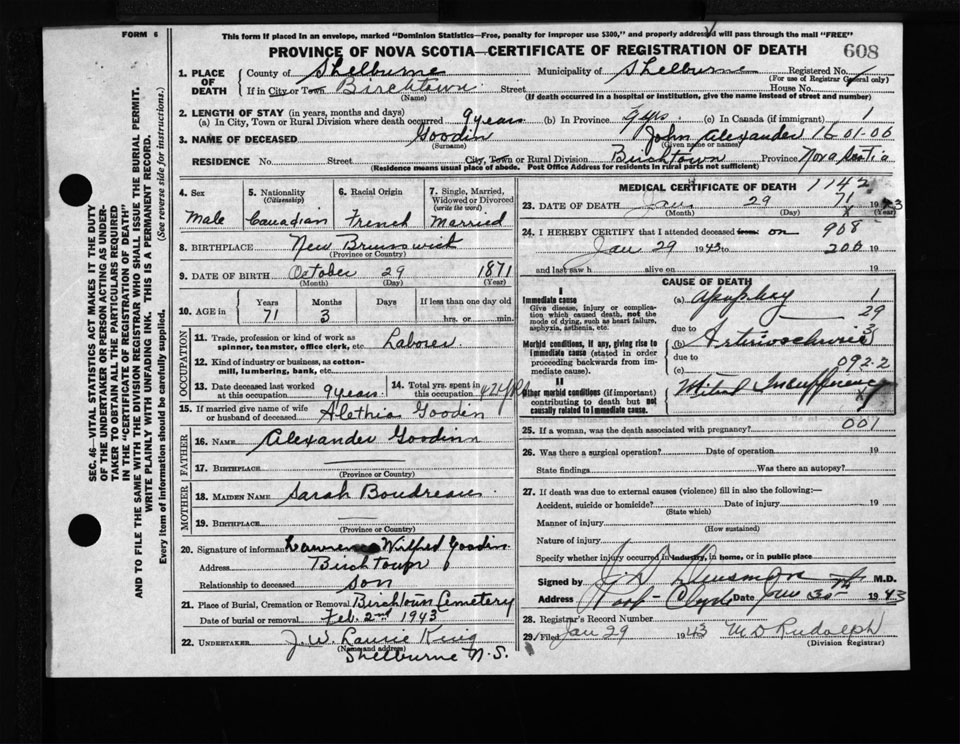 FORM 6
This form if placed in an envelope, marked "Dominion Statistics—Free, penalty for improper use $300," and properly addressed will pass through the mail "FREE"
PROVINCE OF NOVA SCOTIA—CERTIFICATE OF REGISTRATION OF DEATH 608
1. PLACE OF DEATH County of Shelburne Municipality of Shelburne Registered No. 1
(For use of Registrar General only)
If in City or Town Birchtown Street House No.
(Name) (If death occurred in a hospital or institution, give the name instead of street and number)
2. LENGTH OF STAY (in years, months and days)
(a) In City, Town or Rural Division where death occurred 9 years (b) In Province 9 yrs. (c) In Canada (if immigrant) 1
3. NAME OF DECEASED Goodin John Alexander 16-01-06
(Surname) (Given name or names)
RESIDENCE No. Street City, Town or Rural Division Birchtown Province Nova Scotia
(Residence means usual place of abode. Post Office Address for residents in rural parts not sufficient)
4. Sex Male
5. Nationality (Citizenship) Canadian
6. Racial Origin French
7. Single, Married, Widowed or Divorced (write the word) Married
8. BIRTHPLACE New Brunswick
(Province or Country)
9. DATE OF BIRTH October 29 1871
(Month) (Day) (Year)
10. AGE in Years Months Days If less than one day old
71 3 hrs. or min.
OCCUPATION
11. Trade, profession or kind of work as spinner, teamster, office clerk, etc. Laborer
12. Kind of industry or business, as cotton-mill, lumbering, bank, etc.
13. Date deceased last worked at this occupation 9 years.
14. Total yrs. spent in this occupation
15. If married give name of wife or husband of deceased Alethia Goodin
FATHER
16. NAME Alexander Goodinn
17. BIRTHPLACE
(Province or Country)
MOTHER
18. MAIDEN NAME Sarah Boudreau
19. BIRTHPLACE
(Province or Country)
20. Signature of informant Lawrence Wilfred Goodin
Address Birchtown
Relationship to deceased son
21. Place of Burial, Cremation or Removal Birchtown Cemetery
Date of burial or removal Feb. 2nd 1943
22. UNDERTAKER J. W. Laurie King
(Name and address)
Shelburne N.S.
MEDICAL CERTIFICATE OF DEATH 1142
23. DATE OF DEATH Jan 29 71 19 3
(Month) (Day) X (Year)
24. I HEREBY CERTIFY that I attended deceased from on 908
Jan 29 1943 to 200 19
and last saw h alive on 19
CAUSE OF DEATH
I
Immediate cause
Give disease, injury or complication which caused death, not the mode of dying, such as heart failure, asphyxia, asthenia, etc.
(a) 1
29
due to 3
Morbid conditions, if any, giving rise to immediate cause (stated in order proceeding backwards from immediate cause).
(b)
due to
(c) 092.2
II
Other morbid conditions (if important) contributing to death but not causally related to immediate cause.
Mitral Insufficiency
25. If a woman, was the death associated with pregnancy? 001
26. Was there a surgical operation? Date of operation 19
State findings Was there an autopsy?
27. If death was due to external causes (violence) fill in also the following:—
Accident, suicide or homicide? Date of injury 19
(State which)
Manner of injury
(How sustained)
Nature of injury
Specify whether injury occurred in industry, in home, or in public place
Signed by M.D.
Address Date Jan 30 1943
28. Registrar's Record Number
29. Filed Jan 29 1943 M D Rudolph
(Division Registrar)
SEC. 46—VITAL STATISTICS ACT MAKES IT THE DUTY
OF THE UNDERTAKER OR PERSON ACTING AS UNDER-
TAKER TO OBTAIN ALL THE PARTICULARS REQUIRED
IN THE "CERTIFICATE OF REGISTRATION OF DEATH"
AND TO FILE THE SAME WITH THE DIVISION REGISTRAR WHO SHALL ISSUE THE BURIAL PERMIT.
WRITE PLAINLY WITH UNFADING INK. THIS IS A PERMANENT RECORD.
Every item of information should be carefully supplied. (See reverse side for instructions.)